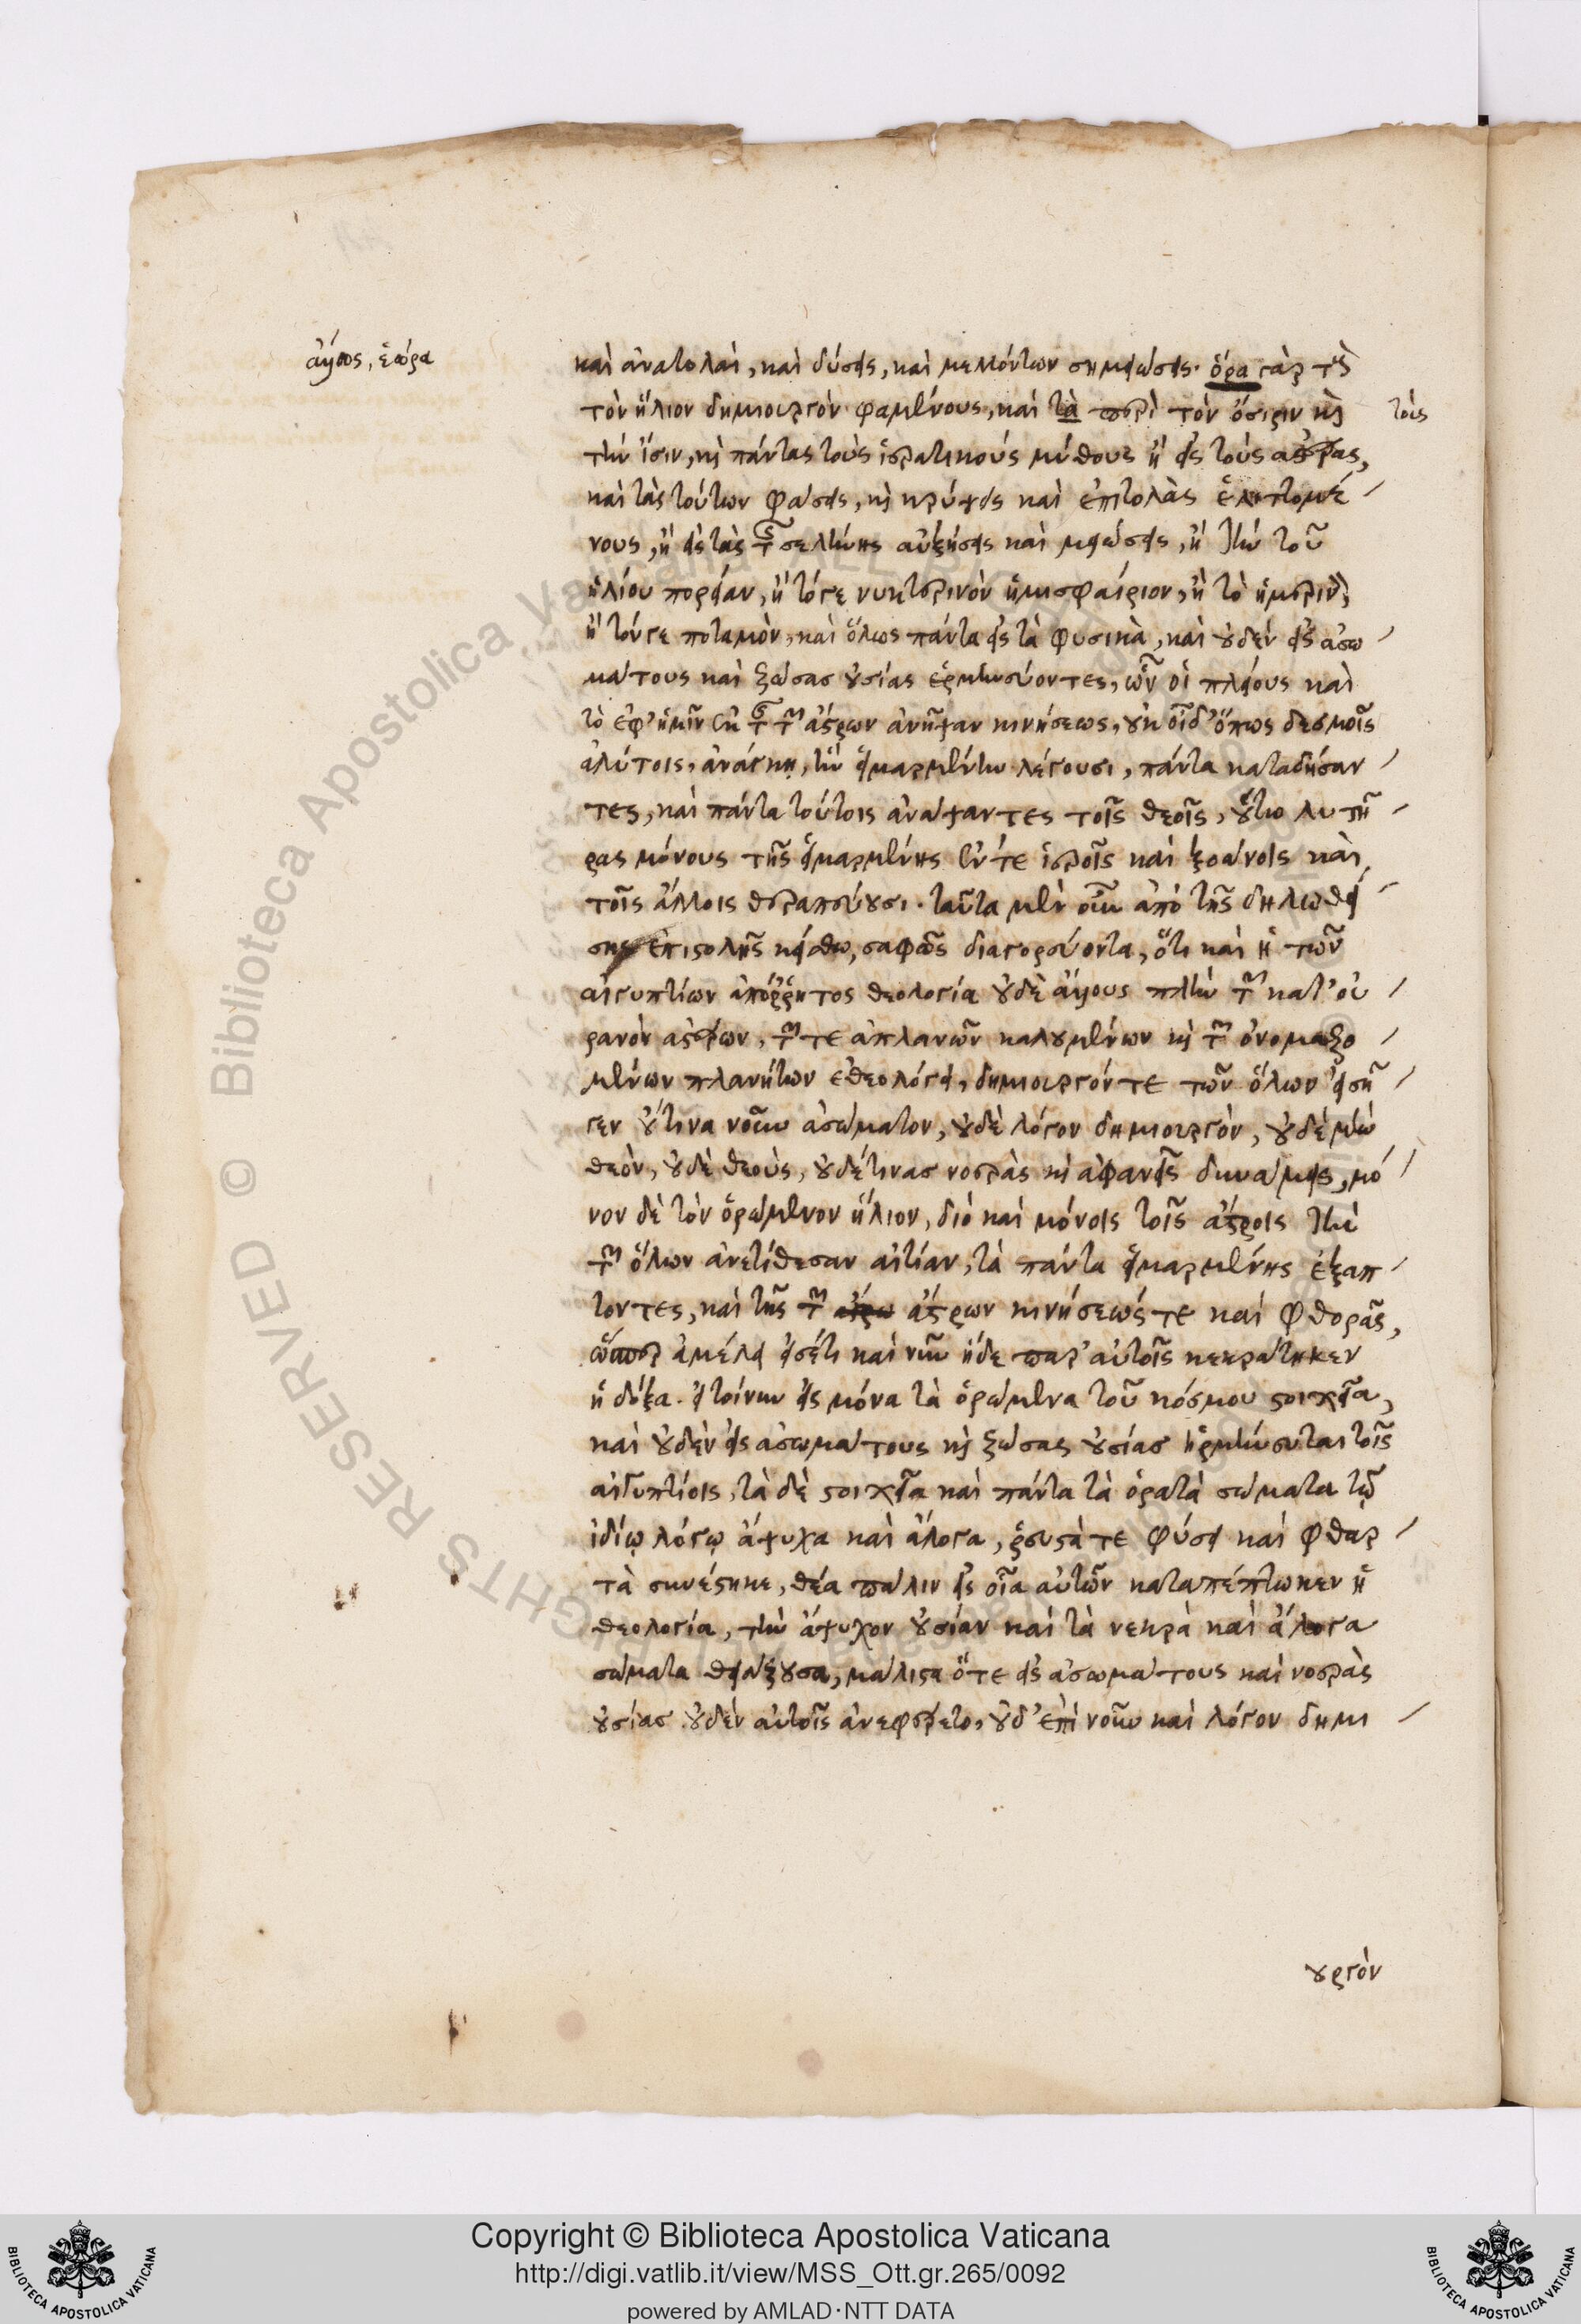 ἄλλως, ἑώρα
καὶ ἀνατολαὶ, καὶ δύσεις, καὶ μελλόντων σημειώσεις· ὅρα γὰρ τοὺς
τὸν ἥλιον δημιουργὸν φαμένους, καὶ τὰ περὶ τὸν ὄσιριν καὶ
τοῖς
τὴν ἴσιν, καὶ πάντας τοὺς ἱερατικοὺς μύθους ἢ εἰς τοὺς ἀστέρας,
καὶ τὰς τούτων φάσεις, καὶ κρύψεις καὶ ἐπιτολὰς ἑλιττομέ
νους, ἢ εἰς τὰς τῆς σελήνης αὐξήσεις καὶ μειώσεις, ἢ τὴν τοῦ
ἡλίου πορείαν, ἢ τό γε νυκτερινὸν ἡμισφαίριον, ἢ τὸ ἡμερινὸν,
ἢ τόν γε ποταμὸν, καὶ ὅλως πάντα εἰς τὰ φυσικὰ, καὶ οὐδὲν εἰς ἀσω
μάτους καὶ ζώσας οὐσίας ἑρμηνεύοντες, ὧν οἱ πλείους καὶ
τὸ ἐφ' ἡμῖν ἐκ τῆς τῶν ἄστρων ἀνῆψαν κινήσεως, οὐκ οἶδ' ὅπως δεσμοῖς
ἀλύτοις, ἀνάγκῃ, ἣν εἱμαρμένην λέγουσι, πάντα καταδήσαν
τες, καὶ πάντα τούτοις ἀνάψαντες τοῖς θεοῖς, οὓς ὡς λυτῆ
ρας μόνους τῆς εἱμαρμένης ἔν τε ἱεροῖς καὶ ξοάνοις καὶ
τοῖς ἄλλοις θεραπεύουσι. ταῦτα μὲν οὖν ἀπὸ τῆς δηλωθεί
σης ἐπιστολῆς κείσθω, σαφῶς διαγορεύοντα, ὅτι καὶ ἡ τῶν
αἰγυπτίων ἀπόῤῥητος θεολογία οὐδὲ ἄλλους πλὴν τῶν κατ' οὐ
ρανὸν ἀστέρων, τῶν τε ἀπλανῶν καλουμένων καὶ τῶν ὀνομαζο
μένων πλανήτων ἐθεολόγει, δημιουργόν τε τῶν ὅλων εἰσῆ
γεν οὔτινα νοῦν ἀσώματον, οὐδὲ λόγον δημιουργὸν, οὐδὲ μὴν
θεὸν, οὐδὲ θεοὺς, οὐδέ τινας νοερὰς καὶ ἀφανεῖς δυνάμεις, μό
νον δὲ τὸν ὁρώμενον ἥλιον, διὸ καὶ μόνοις τοῖς ἄστροις τὴν
τῶν ὅλων ἀνετίθεσαν αἰτίαν, τὰ πάντα εἱμαρμένης ἐξάπ
τοντες, καὶ τῆς τῶν ἄστρων κινήσεώς τε καὶ φθορᾶς,
ὥσπερ ἀμέλει εἰσέτι καὶ νῦν ἥδε παρ' αὐτοῖς κεκράτηκεν
ἡ δόξα. εἰ τοίνυν εἰς μόνα τὰ ὁρώμενα τοῦ κόσμου στοιχεῖα,
καὶ οὐδὲν εἰς ἀσωμάτους καὶ ζώσας οὐσίας ἡρμήνευται τοῖς
αἰγυπτίοις, τὰ δὲ στοιχεῖα καὶ πάντα τὰ ὁρατὰ σώματα τῷ
ἰδίῳ λόγῳ ἄψυχα καὶ ἄλογα, ῥευστά τε φύσει καὶ φθαρ
τὰ συνέστηκε, θέα πάλιν εἰς οἷα αὐτῶν καταπέπτωκεν ἡ
θεολογία, τὴν ἄψυχον οὐσίαν καὶ τὰ νεκρὰ καὶ ἄλογα
σώματα θειάζουσα, μάλιστα ὅτε εἰς ἀσωμάτους καὶ νοερὰς
οὐσίας οὐδὲν αὐτοῖς ἀνεφέρετο, οὐδ' ἐπὶ νοῦν καὶ λόγον δημι
ουργὸν
BIBLIOTECA APOSTOLICA VATICANA
Copyright © Biblioteca Apostolica Vaticana
http://digi.vatlib.it/view/MSS_Ott.gr.265/0092
powered by AMLAD·NTT DATA
BIBLIOTECA APOSTOLICA VATICANA